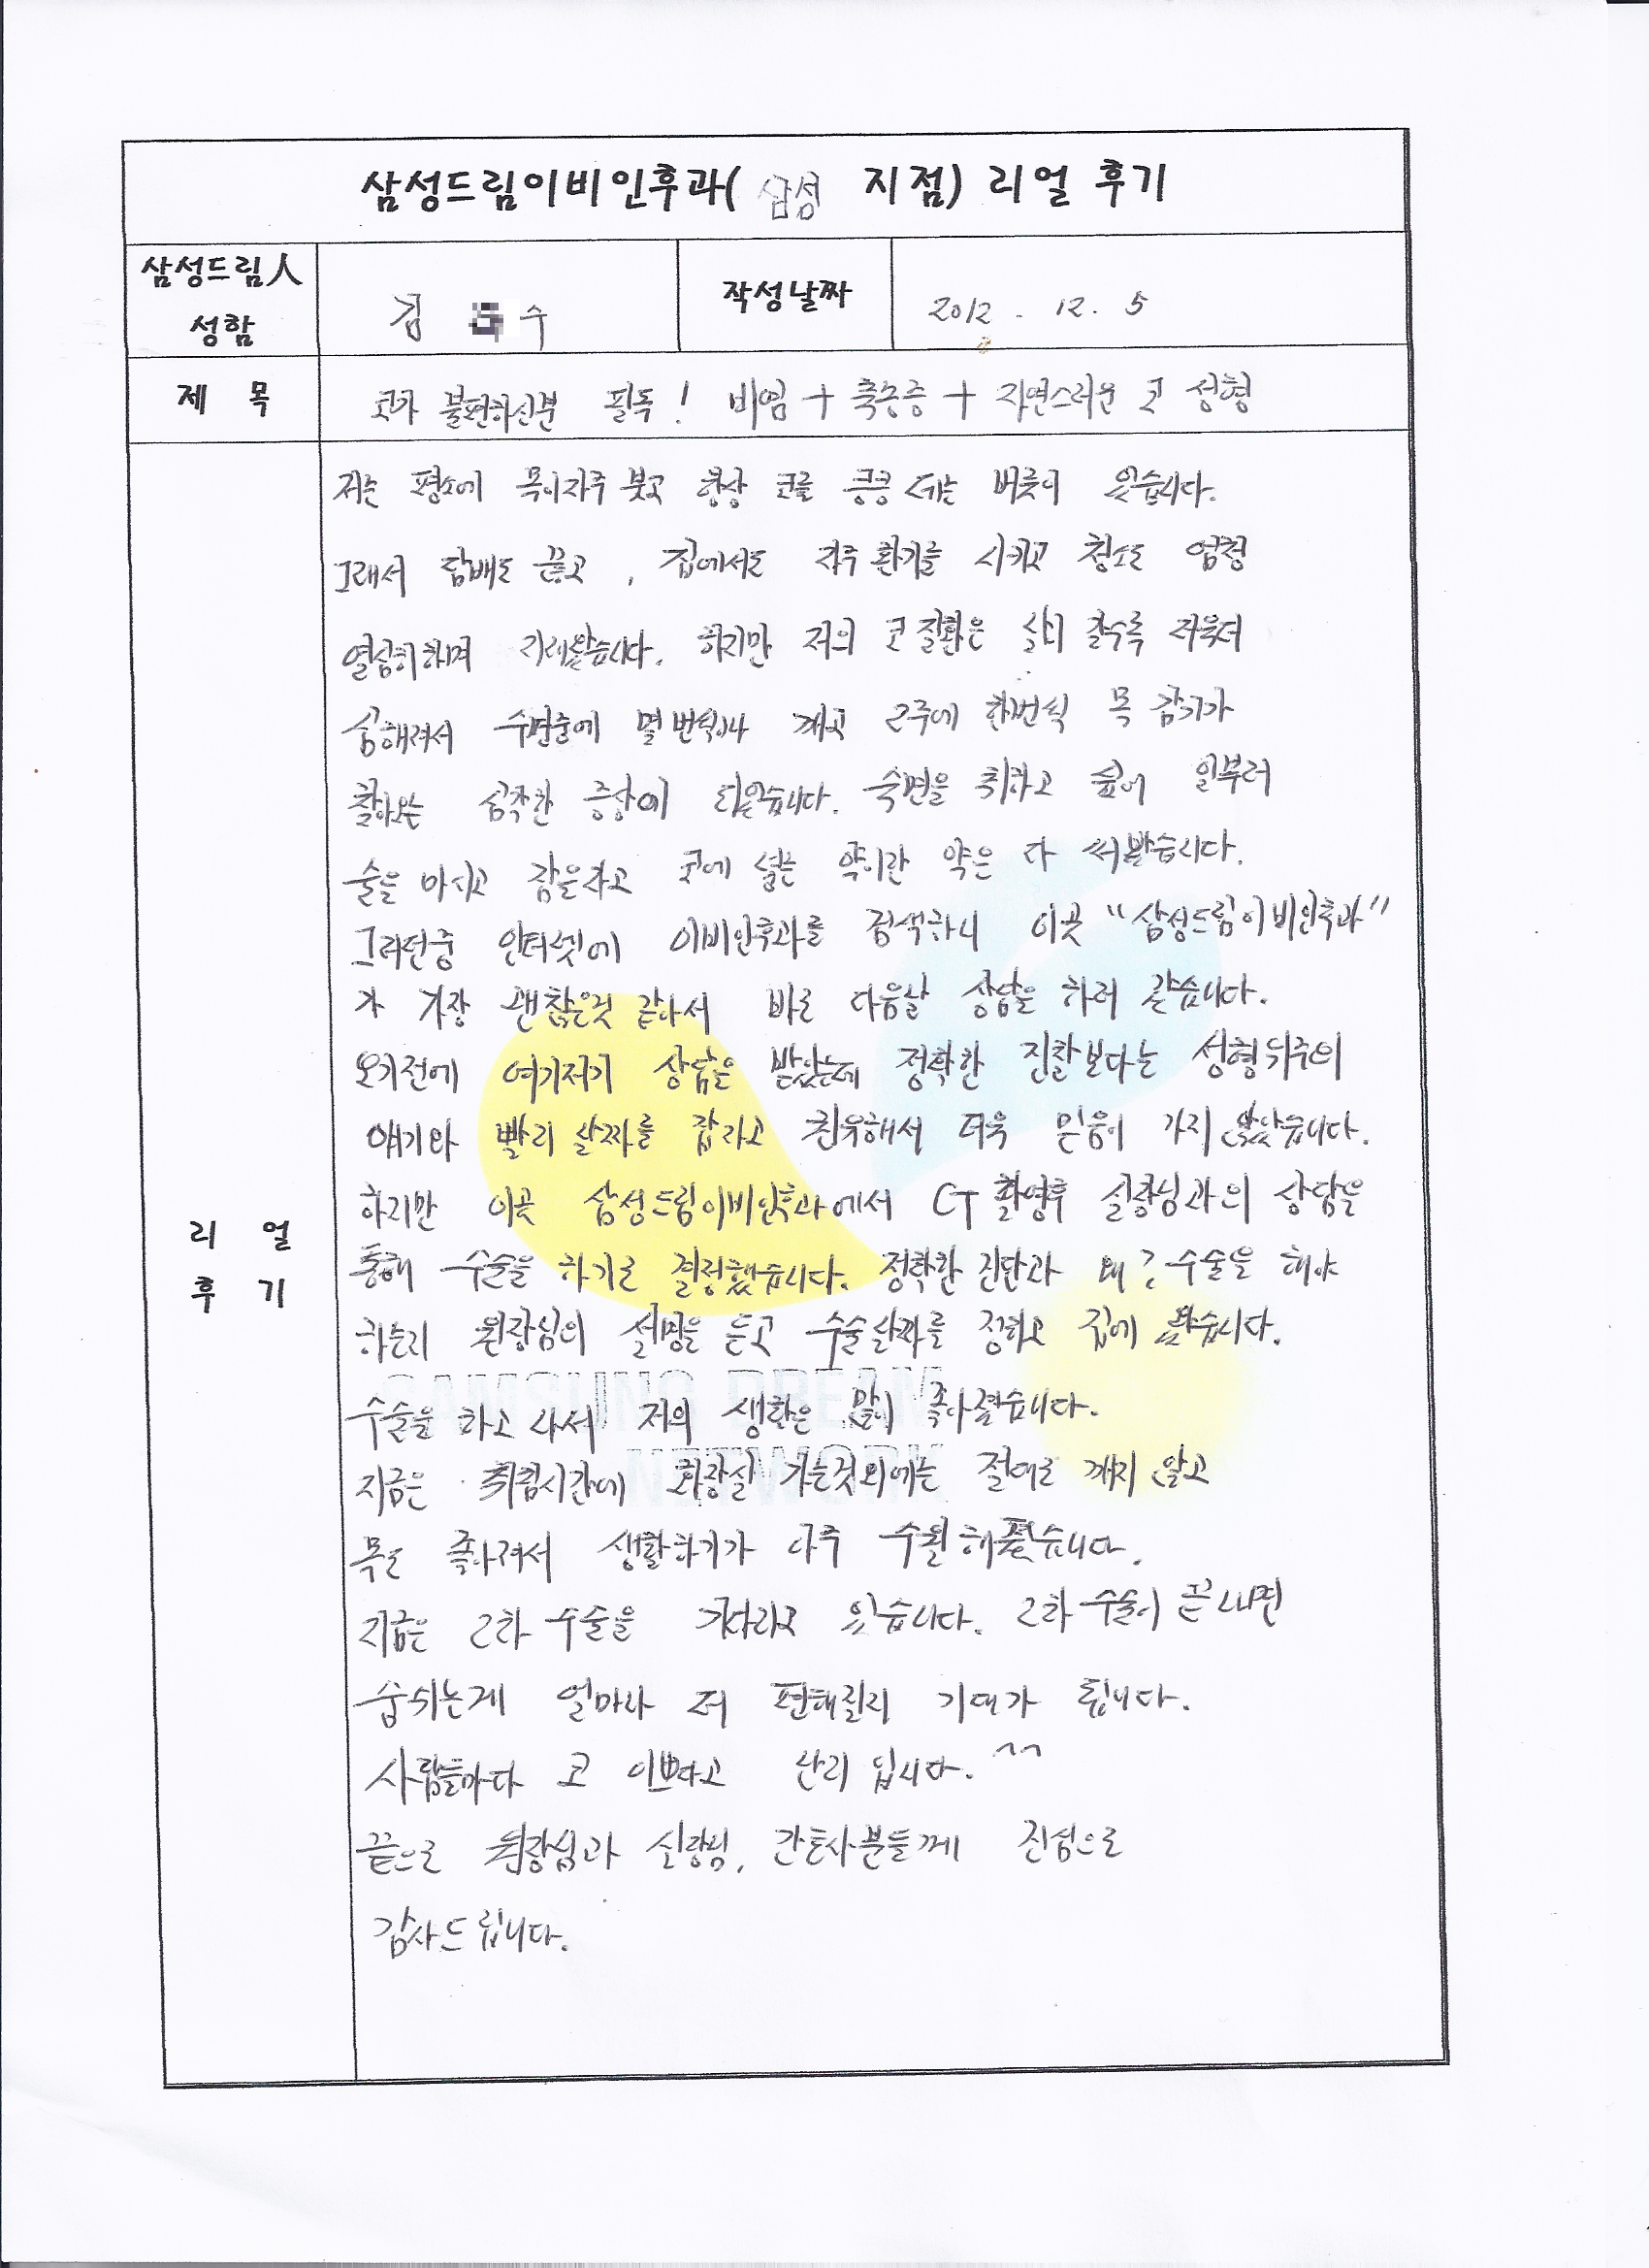 삼성드림이비인후과( 삼성 지점) 리얼 후기
삼성드림人 성함
김 수
작성날짜
2012 . 12. 5
제 목
코가 불편하신분 필독! 비염 + 축농증 + 자연스러운 코 성형
리 얼 후 기
저는 평소에 목이자주 붓고 항상 코를 킁킁 대는 버릇이 있습니다.
그래서 담배도 끊고, 집에서도 자주 환기를 시키고 청소도 엄청
열심히하며 지내왔습니다. 하지만 저의 코 질환은 날이 갈수록 더욱더
심해져서 수면중에 몇 번씩이나 깨고 2주에 한번씩 목 감기가
찾아오는 심각한 증상이 되었습니다. 숙면을 취하고 싶어 일부러
술을 마시고 잠을자고 코에 넣는 약이란 약은 다 써봤습니다.
그러던중 인터넷에 이비인후과를 검색하니 이곳 "삼성드림이비인후과"
가 가장 괜찮은것 같아서 바로 다음날 상담을 하러 갔습니다.
오기전에 여기저기 상담을 받았는데 정확한 진찰보다는 성형위주의
얘기와 빨리 날짜를 잡자고 권유해서 더욱 믿음이 가지 않았습니다.
하지만 이곳 삼성드림이비인후과에서 CT 촬영후 실장님과의 상담을
통해 수술을 하기로 결정했습니다. 정확한 진단과 왜? 수술을 해야
하는지 원장님의 설명을 듣고 수술날짜를 정하고 집에 왔습니다.
SAMSUNG DREAM
NETWORK
수술을 하고 나서 저의 생활은 많이 좋아졌습니다.
지금은 취침시간에 화장실 가는것외에는 절대로 깨지 않고
목도 좋아져서 생활하기가 아주 수월해졌습니다.
지금은 2차 수술을 기다리고 있습니다. 2차 수술이 끝나면
숨쉬는게 얼마나 더 편해질지 기대가 됩니다.
사람들마다 코 이쁘다고 난리 입니다. ^^
끝으로 원장님과 실장님, 간호사분들께 진심으로
감사드립니다.